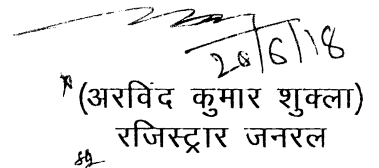 20/6/18
(अरविंद कुमार शुक्ला)
रजिस्ट्रार जनरल